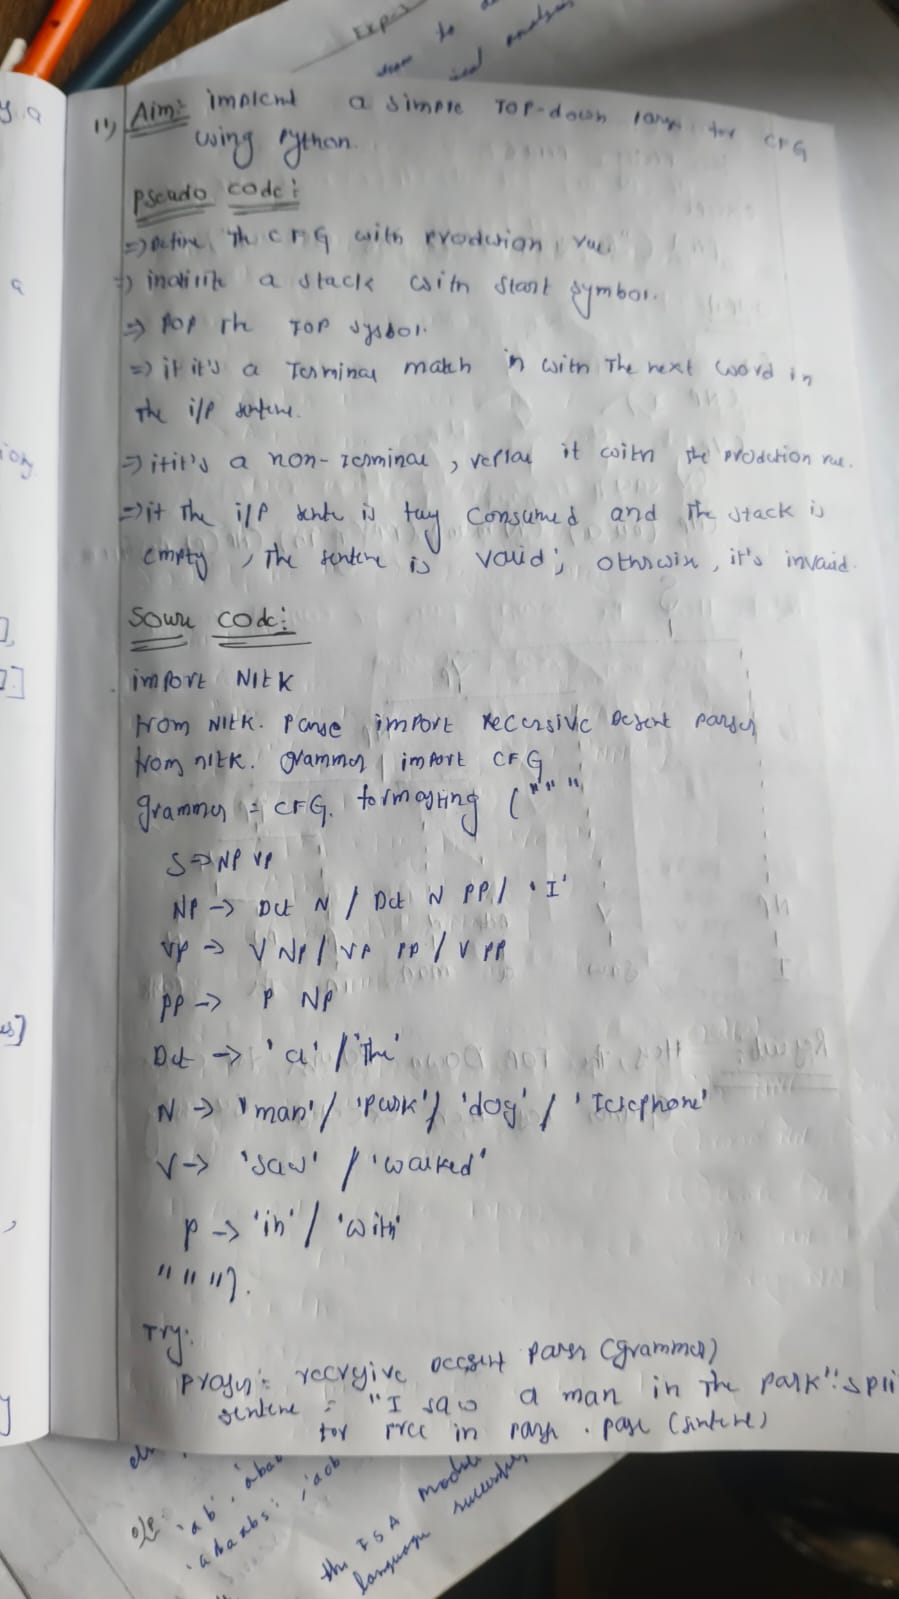 11) Aim: implemt a simple Top-down parsr for CFG
using Python.
Pseudo code:
=> Define the CFG with production rule.
=> initilite a stack with start symbol.
=> POP the TOP sysbol.
=> if it's a Terminal match in with The next word in
the i/p sentene.
=> if it's a non-Terminal, replae it with the prodction rule.
=> if The i/p sente is fuy Consumed and The stack is
empty, The sentene is valid; othrwise, it's invalid.
Soure code:
import Nltk
from Nltk. Parse import Recersive Desent parser
from nltk. grammer import CFG
grammer = CFG. formostring ("""
S => NP VP
NP -> Det N / Det N PP / 'I'
VP -> V NP / VP PP / V PP
PP -> P NP
Det -> 'a' / 'The'
N -> 'man' / 'park' / 'dog' / 'Telephone'
V -> 'saw' / 'walked'
P -> 'in' / 'with'
""").
Try:
parser = recrsive decsent parser (grammer)
sentene = "I saw a man in The park". spli
for tree in parsr . parse (sentene)
Exp-
to
ical analysis
o/p:
'ab', 'aba
the FSA model
language successfully